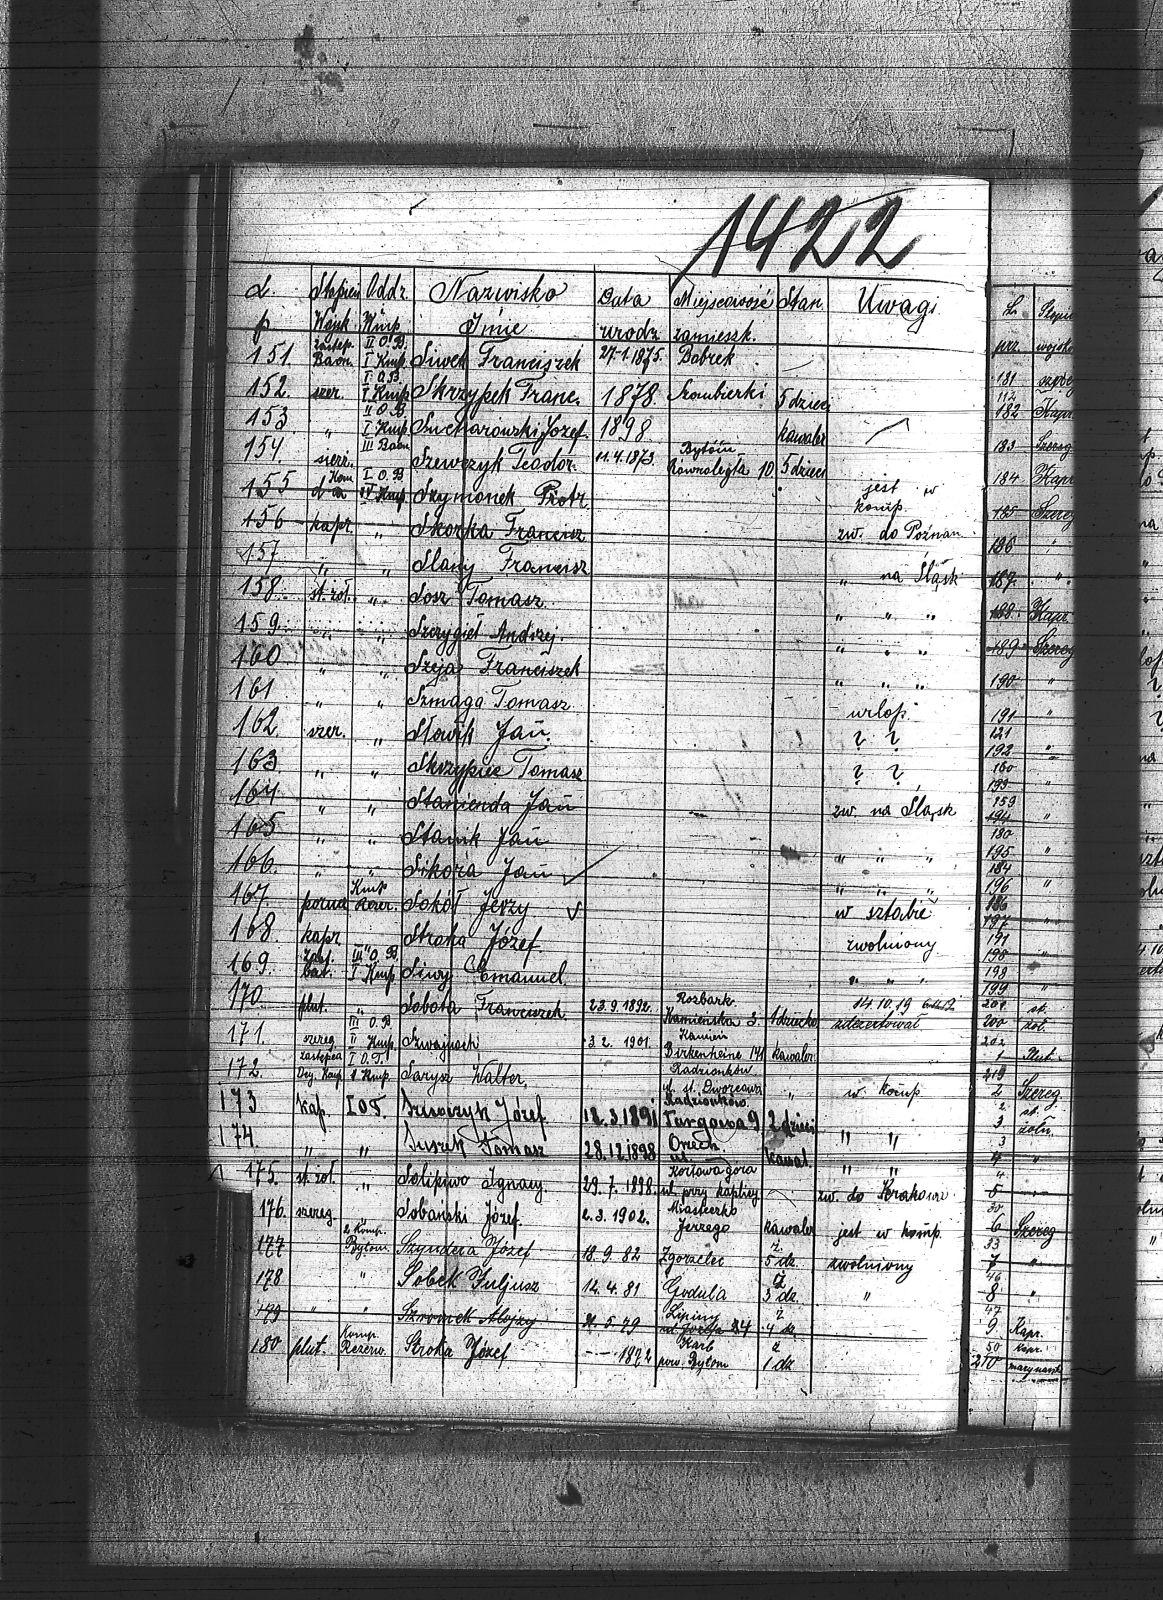 1422
L. Stopień Oddz. Nazwisko Data Miejscowość Stan Uwagi
p Wojsk Kmp. Imię urodz. zamieszk.
151 zastęp. Baon. II O.B. I Kmp. Siwek Franciszek 27.1.1875. Bobrek
152. szer. I O.B. I Kmp. Skrzypek Franc. 1878. Szombierki 5 dzieci
153 " II O.B. I Kmp. Sucharowski Józef. 1898. kawaler
154. szer. III Baon Szewczyk Teodor. 11.4.1873. Bytom Równoległa 10 5 dzieci
155 Kom I O.B. IV Kmp. Szymonek Piotr jest w komp.
156 kapr. " Skorka Francisz zw. do Poznan
157 " " Slany Francisz " na Śląsk
158. st. żoł. " Sosz Tomasz " " "
159 " " Szczygieł Andrzej. " " "
160 " " Szyja Franciszek " " "
161 " " Szmaga Tomasz urlop.
162 szer. " Słowik Jan ? ?
163 " " Skrzypiec Tomasz ? ?
164 " " Stanienda Jan zw. na Śląsk
165 " " Stanik Jan " " "
166. " " Sikora Jan " " "
167. Kmp. Rezer. Sokół Jerzy w sztabie
168 kapr Stroka Józef zwolniony
169. zast. bat. III O.B. I Kmp. Siwy Emanuel " "
170 plut. " Sobota Franciszek 23.9.1892. Rozbark. Kamieńska 3. 1 dziecko 14 10.19 zdezertował
171. szereg. III O.B. II Kmp. Szwajnoch 3.2.1901. Kamień Birkenheine 141 kawaler
172. zastępca I O.T. 1 Kmp. Sarysz Walter, Radzionków ul. st. Dworcowa " w komp
173 Kap. I O T. Szewczyk Józef 12.3.1891 Radzionków Targowa 9 2 dzieci " "
174 " " Suszek Tomasz 28.12.1898 Orzech kawal. " "
175. st. żoł. " Solipiwo Ignacy. 29.7.1898. Kozłowa góra ul. przy kaplicy zw. do Krakowa
176. szereg. Sobański Józef. 2.3.1902. Miasteczko Jerzego kawaler jest w komp.
177 2 Komp. Bytom. Szyndera Józef 18.9 82 Zgorzelec ż. 5 dz. zwolniony
178 " Sobek Juljusz 12.4.81 Godula ż 3 dz. "
179 " " Szromek Alojzy 5.79 Lipiny 24 ż 4 dz
180 plut. Komp. Rezerw. Stroka Józef - - 1872 Karb pow. Bytom ż 1 dz
L. Stopień
wojsko
181
112
182 Kapr
183 Szereg
184 Kapr
185 Szereg
186 "
187. "
188. Kapr
189 Szereg
190 "
191 "
121
192 "
160
193
159
194 "
180
195 "
184
196 "
186
197 "
191
198 "
198
199 "
201 st.
200 żoł.
202
1 Plut.
219
2 Szereg
st.
3 żołn.
3
4 "
5 "
30
6 Szereg
33
7 "
46
8 "
47
9 Kapr.
50 Kapr.
210